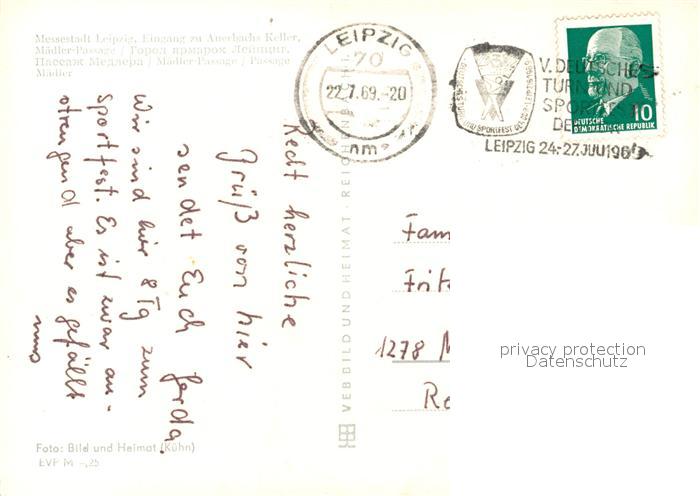 Messestadt Leipzig, Eingang zu Auerbachs Keller,
Mädler-Passage / Город ярмарок Лейпциг.
Пассаж Медлера / Mädler-Passage / Passage
Mädler
LEIPZIG
70
22.7.69.-20
nm
V. DEUTSCHES
TURN- UND
SPORTFEST
DER DDR
LEIPZIG 24.-27. JULI 1969
10
DEUTSCHE
DEMOKRATISCHE REPUBLIK
Recht herzliche
Grüß von hier
sendet Euch Gerda.
Wir sind hier 8 Tg zum
Sportfest. Es ist zwar an-
strengend aber es gefällt
uns
VEB BILD UND HEIMAT · REICHENBACH
Fam
Fritz
1278 M
Re
privacy protection
Datenschutz
Foto: Bild und Heimat (Kühn)
EVP M -,25